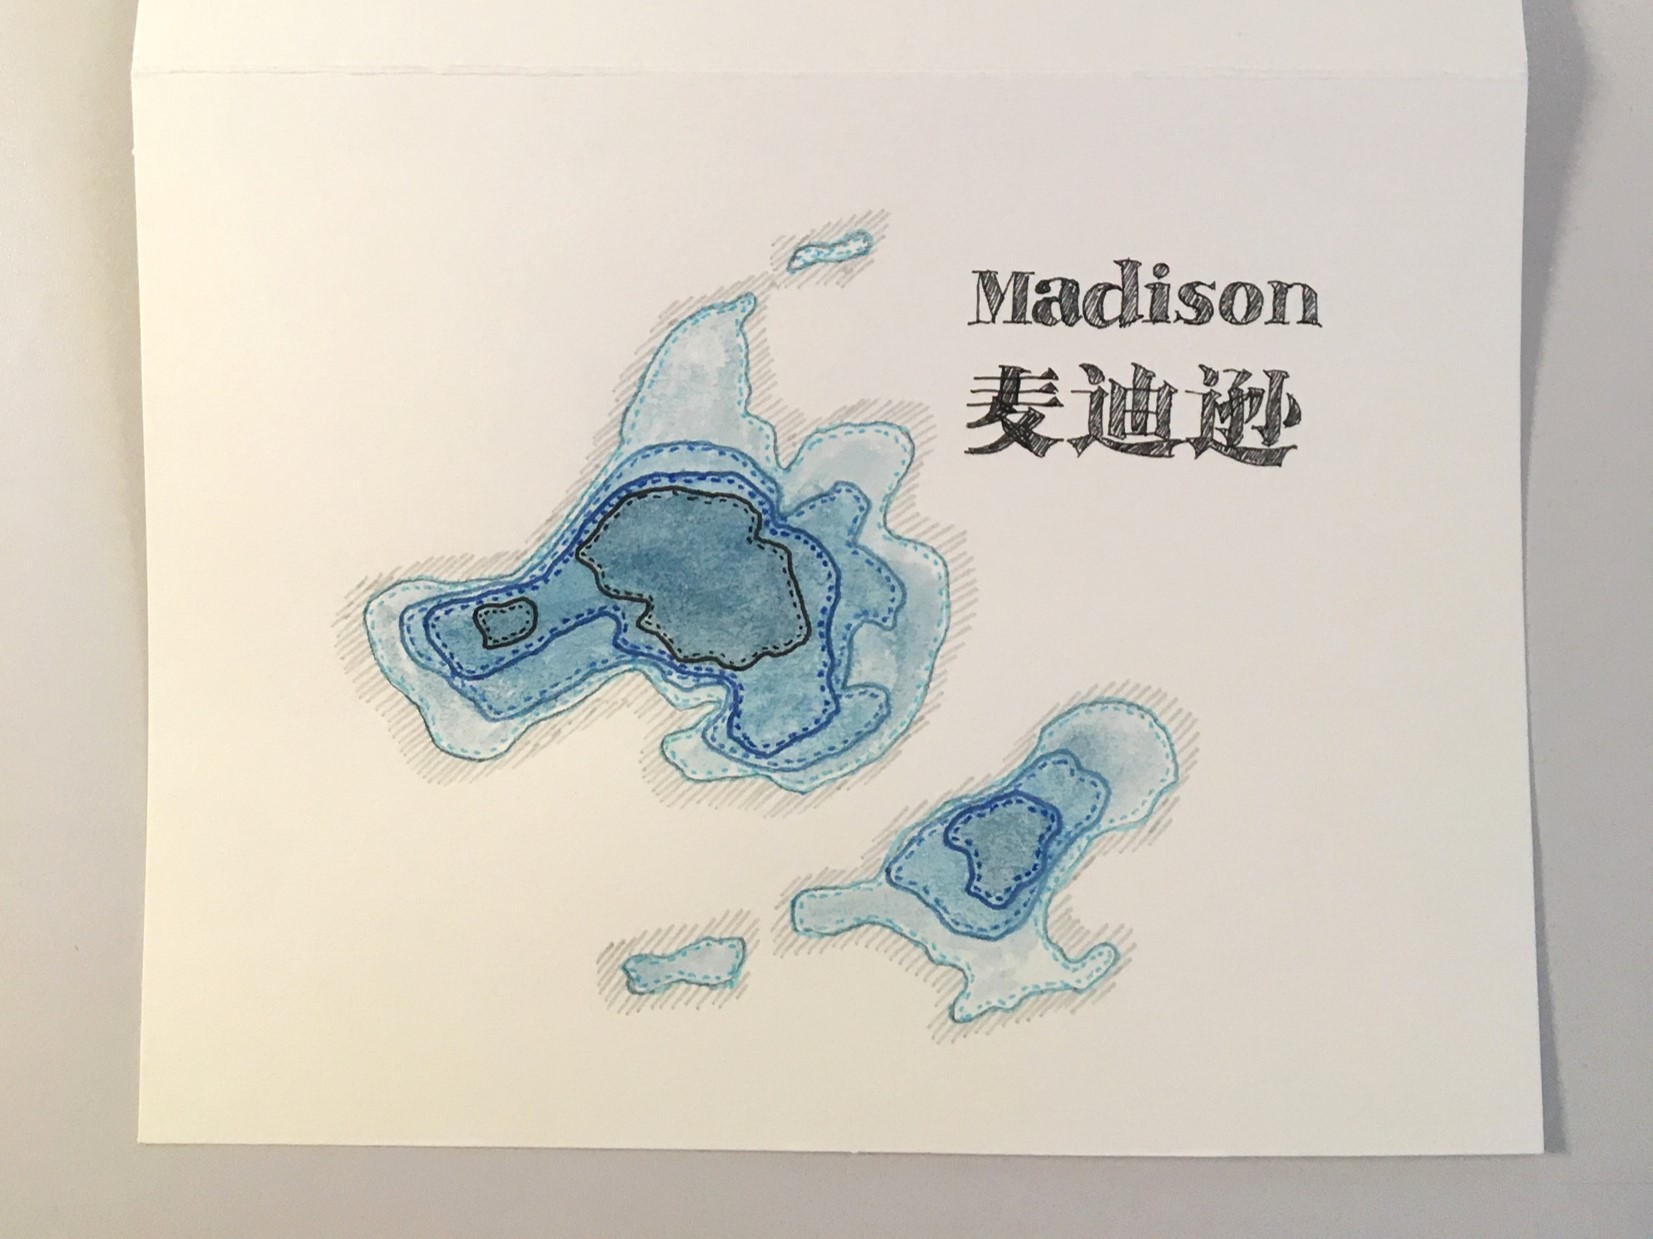 Madison
麦迪逊